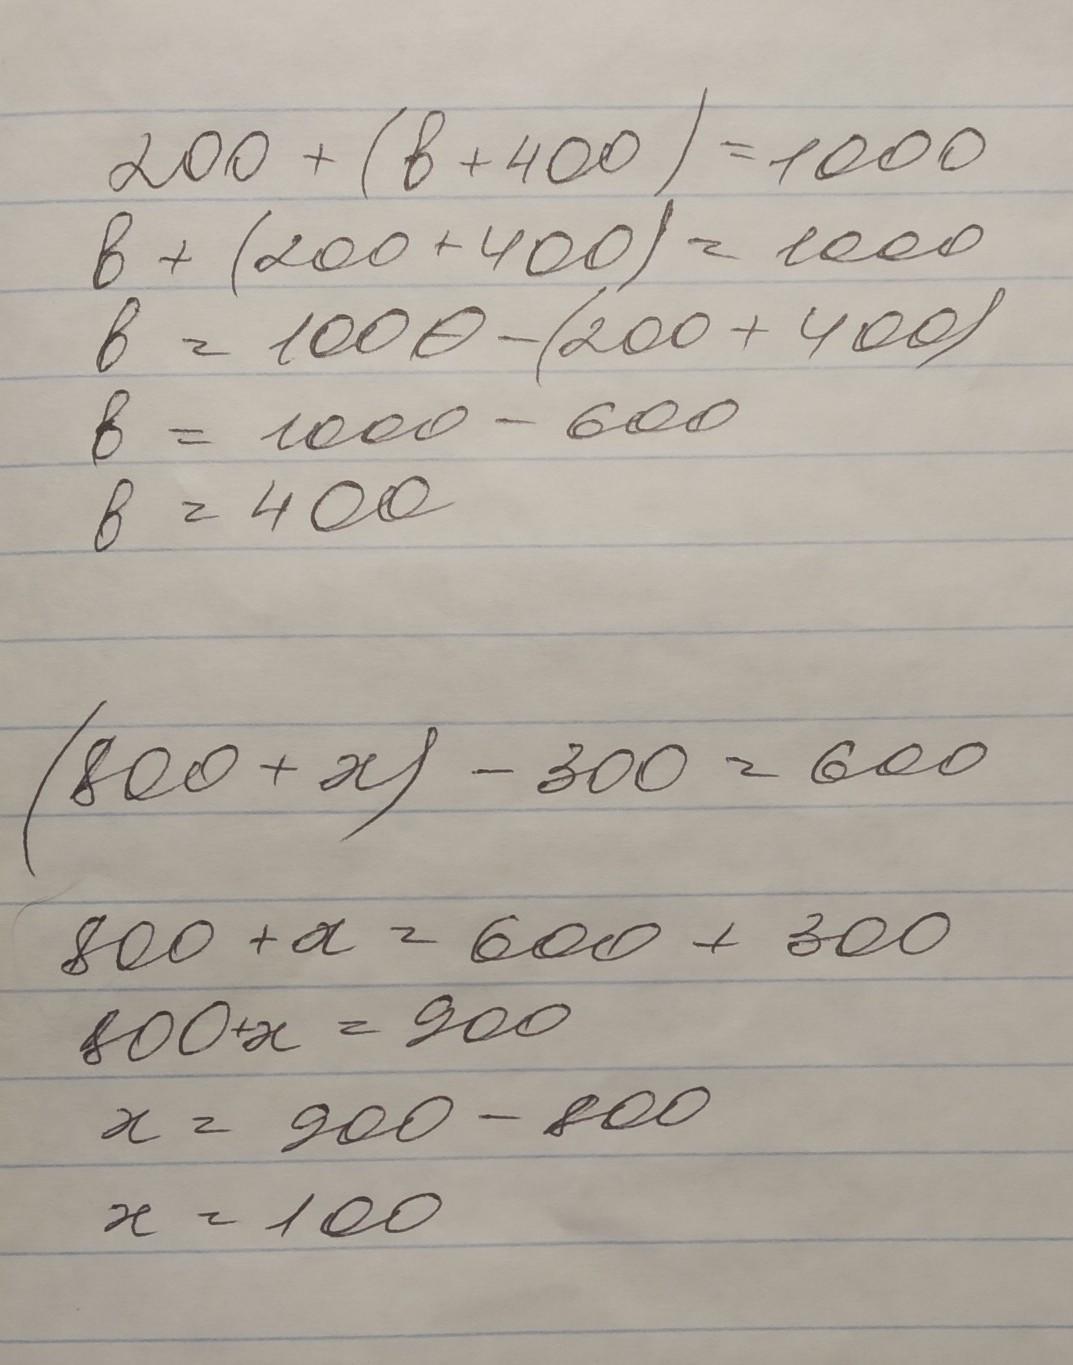 200 + (b + 400) = 1000
b + (200 + 400) = 1000
b = 1000 - (200 + 400)
b = 1000 - 600
b = 400
(800 + x) - 300 = 600
800 + x = 600 + 300
800 + x = 900
x = 900 - 800
x = 100